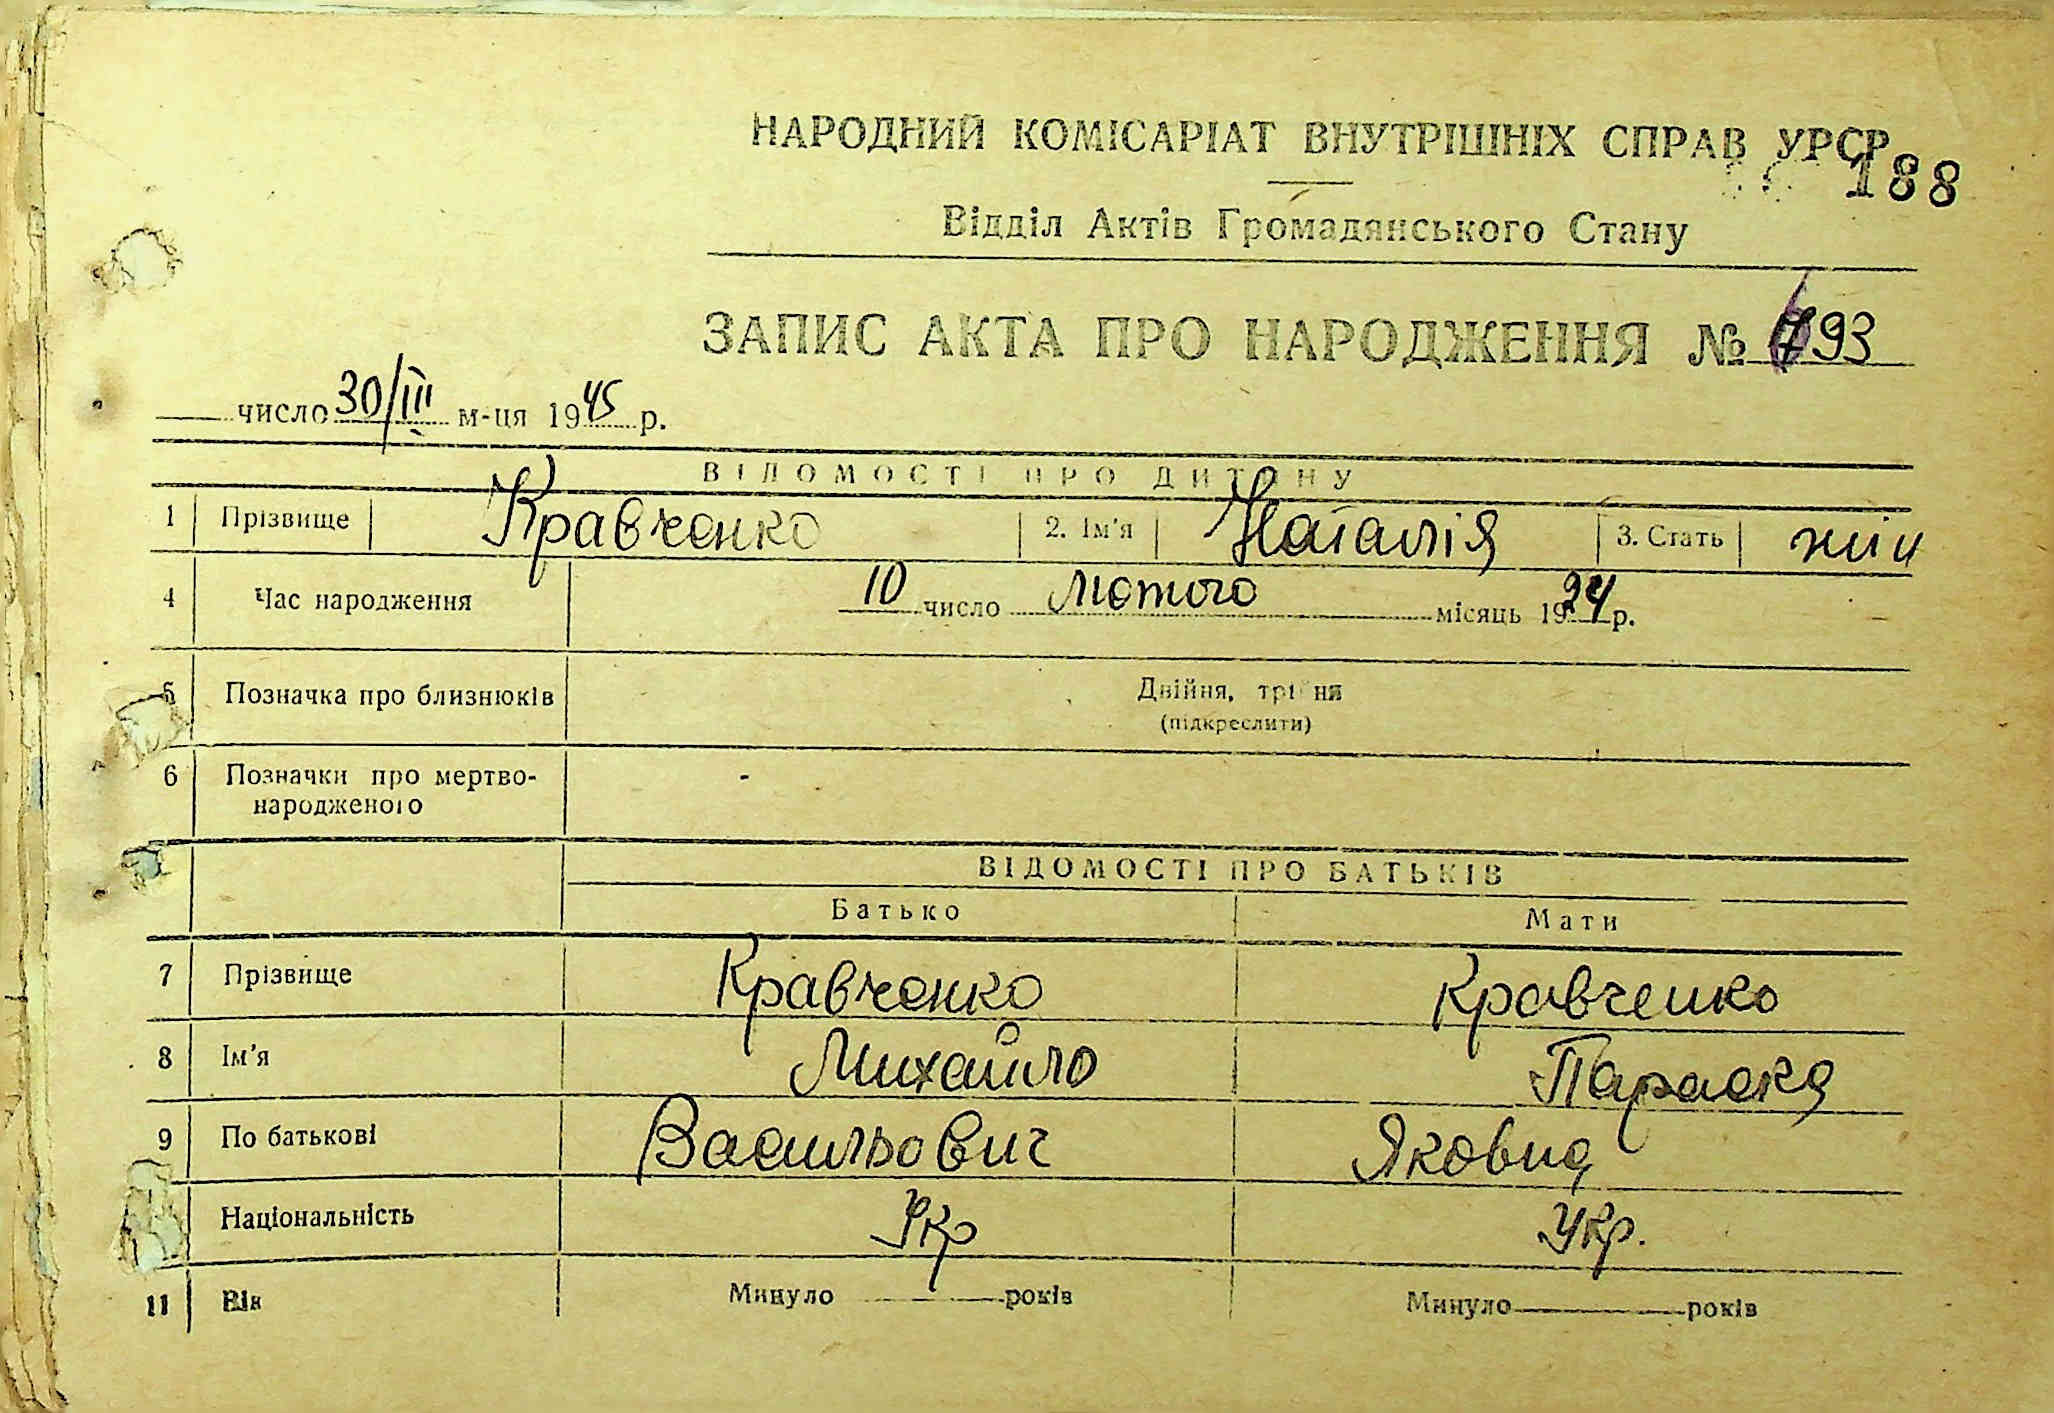 НАРОДНИЙ КОМІСАРІАТ ВНУТРІШНІХ СПРАВ УРСР
188
Відділ Актів Громадянського Стану
ЗАПИС АКТА ПРО НАРОДЖЕННЯ № 693
число 30/III м-ця 1945 р.
ВІДОМОСТІ ПРО ДИТИНУ
1 Прізвище Кравченко 2. Ім'я Наталія 3. Стать жін
4 Час народження 10 число лютого місяць 1924 р.
5 Позначка про близнюків Двійня, трійня
(підкреслити)
6 Позначки про мертво-
народженого -
ВІДОМОСТІ ПРО БАТЬКІВ
Батько Мати
7 Прізвище Кравченко Кравченко
8 Ім'я Михайло Параска
9 По батькові Васильович Яковна
Національність Укр Укр.
11 Вік Минуло років Минуло років